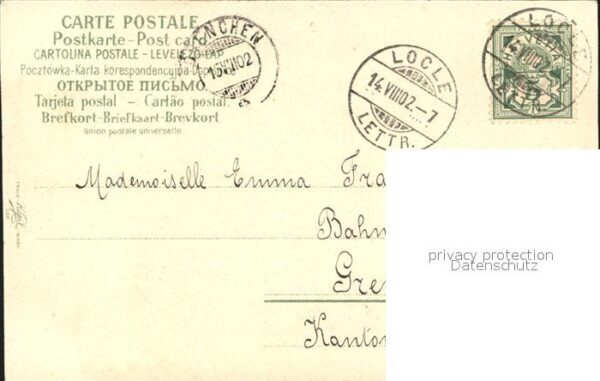 CARTE POSTALE
Postkarte - Post car
CARTOLINA POSTALE - LEVELEZŐ-LAP
Pocztówka-Karta korespondencyjna-Dop
ОТКРЫТОЕ ПИСЬМО
Tarjeta postal - Cartão postal
Brefkort-Briefkaart-Brevkort
Union postale universelle
LOCLE
14.VIII02.-7
LETTR.
LOCLE
LETTR.
Mademoiselle Emma Fra
Bahn
Gre
Kanton
privacy protection
Datenschutz